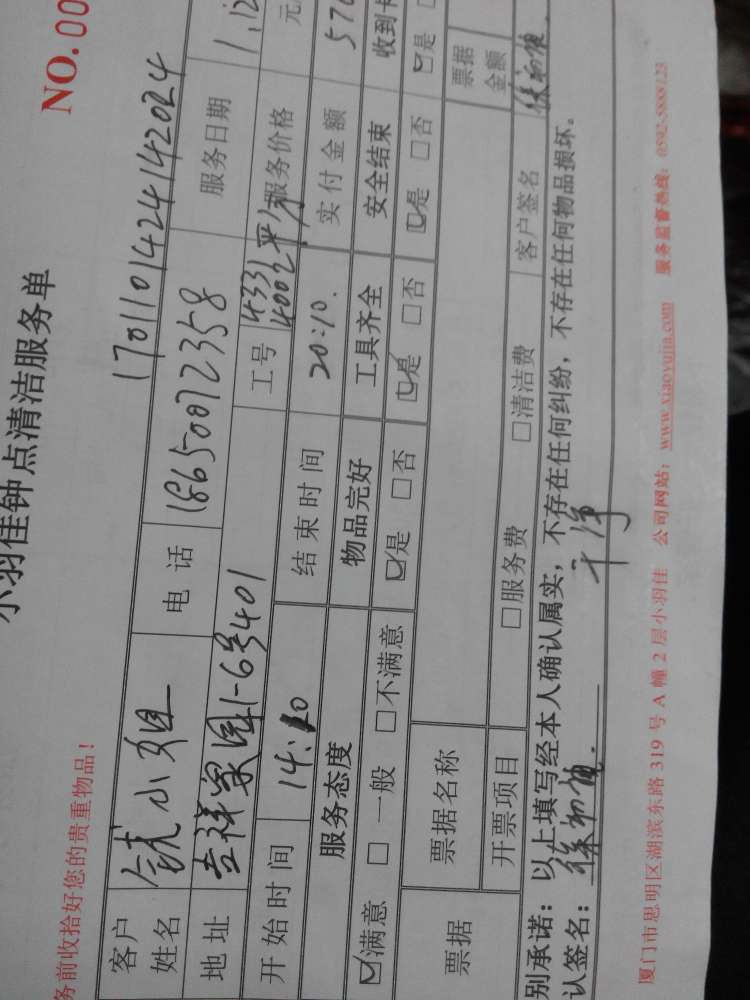 小羽佳钟点清洁服务单
NO.00
务前收拾好您的贵重物品!
1701101424142024
客户姓名 钱小姐 电话 18650072358 服务日期 1.12
地址 吉祥家园1-6号401 工号 4331 4002 服务价格 元/
开始时间 14:10 结束时间 20:10. 实付金额 570
服务态度 物品完好 工具齐全 安全结束 收到卡
☑满意 □一般 □不满意 ☑是 □否 ☑是 □否 ☑是 □否 ☑是
票据 票据名称 票据金额
开票项目 □服务费 □清洁费 客户签名
别承诺:以上填写经本人确认属实,不存在任何纠纷,不存在任何物品损坏。
认签名: 干净
厦门市思明区湖滨东路 319 号 A 幢 2 层小羽佳 公司网站: www.xiaoyujia.com 服务监督热线: 0592-5888123